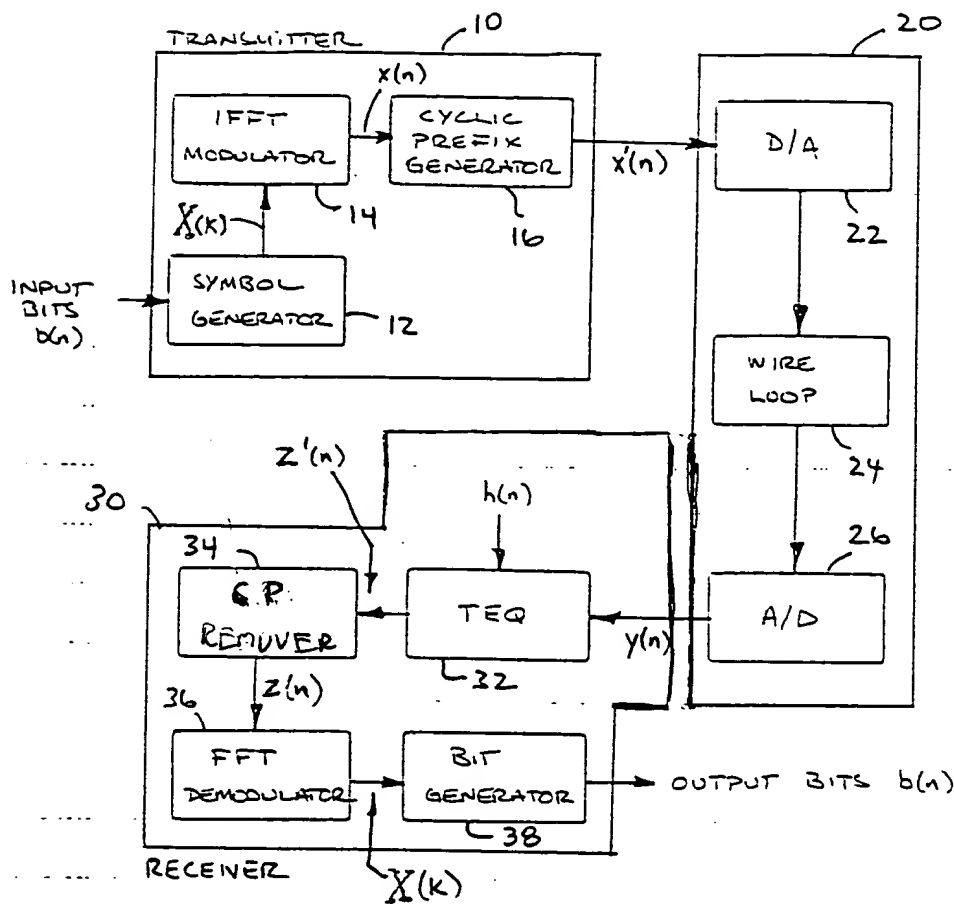 TRANSMITTER
10
20
x(n)
IFFT
MODULATOR
14
CYCLIC
PREFIX
GENERATOR
16
x'(n)
D/A
22
X(k)
INPUT
BITS
b(n)
SYMBOL
GENERATOR
12
WIRE
LOOP
24
z'(n)
h(n)
30
34
C.P.
REMUVER
TEQ
32
y(n)
26
A/D
z(n)
36
FFT
DEMODULATOR
BIT
GENERATOR
38
OUTPUT BITS b(n)
RECEIVER
X(k)